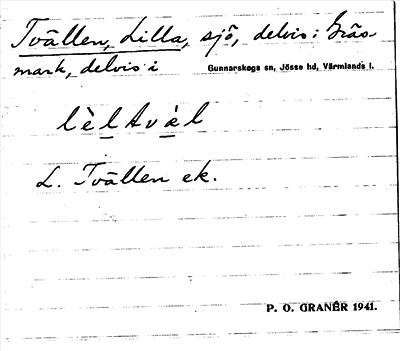 Tvällen, Lilla, sjö, delvis i Gräs-
mark, delvis i Gunnarskogs sn, Jösse hd, Värmlands l.
lèltvàl
L. Tvällen ek.
P. O. GRANÉR 1941.